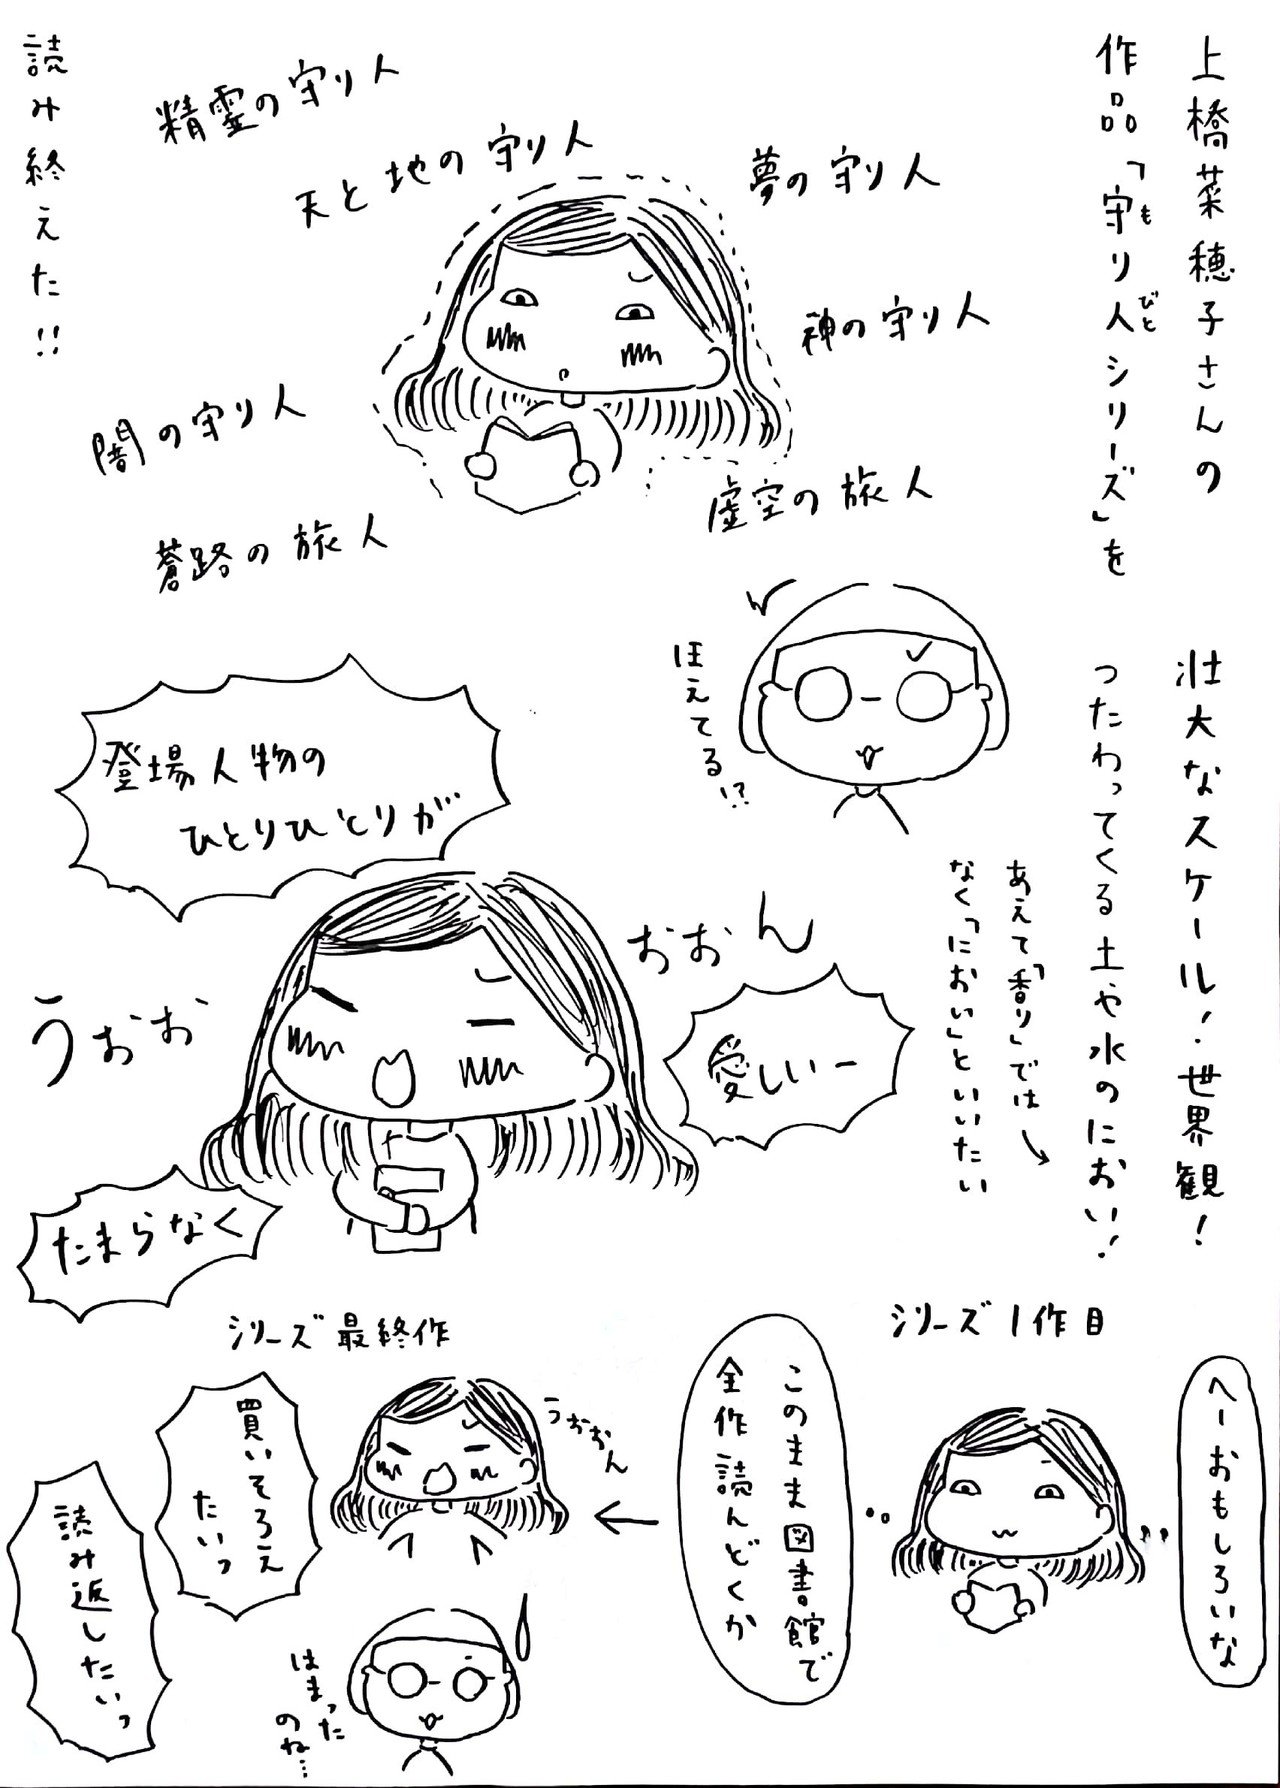 上橋菜穂子さんの
作品「守り人シリーズ」を
もり
びと
読み終えた!!
精霊の守り人
天と地の守り人
夢の守り人
神の守り人
闇の守り人
虚空の旅人
蒼路の旅人
壮大なスケール!世界観!
つたわってくる土や水のにおい!
あえて「香り」では
なく「におい」といいたい
ほえてる!?
登場人物の
ひとりひとりが
うおお
おおん
たまらなく
愛しいー
シリーズ1作目
へーおもしろいな
このまま図書館で
全作読んどくか
シリーズ最終作
うおおん
買いそろえ
たいっ
読み返したいっ
はまった
のね…